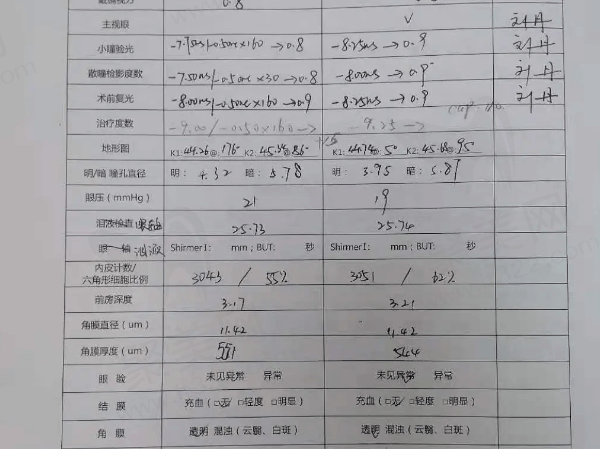 0.8
主视眼 V 刘丹
小瞳验光 -7.75DS/-0.50DC×160→0.8 -8.25DS→0.9 刘丹
散瞳检影度数 -7.50DS/-0.50DC×30→0.8 -8.00DS→0.9 刘丹
术前复光 -8.00DS/-0.50DC×160→0.9 -8.25DS→0.9 刘丹
治疗度数 -9.00/-0.50×160→ -9.25→
地形图 K1:44.26@:176° K2:45.@:86° K1:44.74@:5° K2:45.68@:95°
明/暗 瞳孔直径 明:4.32 暗:5.78 明:3.95 暗:5.81
眼压(mmHg) 21 19
泪液检查 眼轴 25.73 25.74
眼轴 泪液 ShirmerⅠ: mm;BUT: 秒 ShirmerⅠ: mm;BUT: 秒
内皮计数/
六角形细胞比例 3043 / 55% 3051 / 62%
前房深度 3.17 3.21
角膜直径(um) 11.42 11.42
角膜厚度(um) 551 544
眼 睑 未见异常 异常 未见异常 异常
结 膜 充血(□无 □轻度 □明显) 充血(□无 □轻度 □明显)
角 膜 透明 混浊(云翳、白斑) 透明 混浊(云翳、白斑)